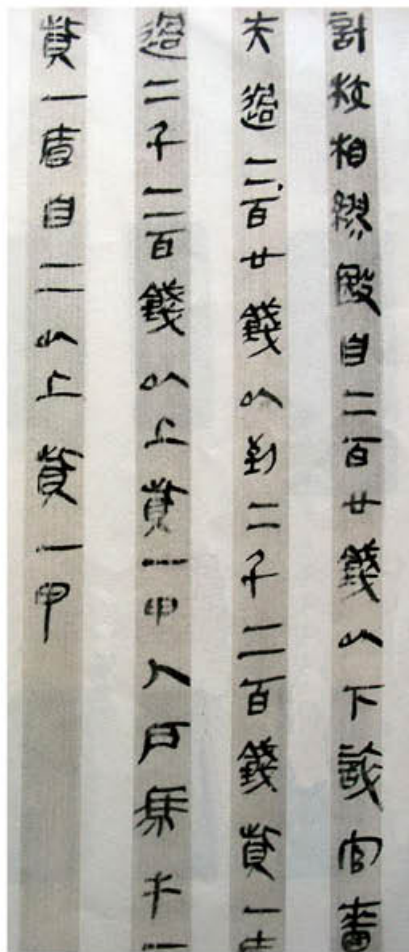 計校相繆殹自二百廿錢以下誶官嗇
夫過二百廿錢以到二千二百錢貲一盾
過二千二百錢以上貲一甲人戶馬牛一
貲一盾自二以上貲一甲